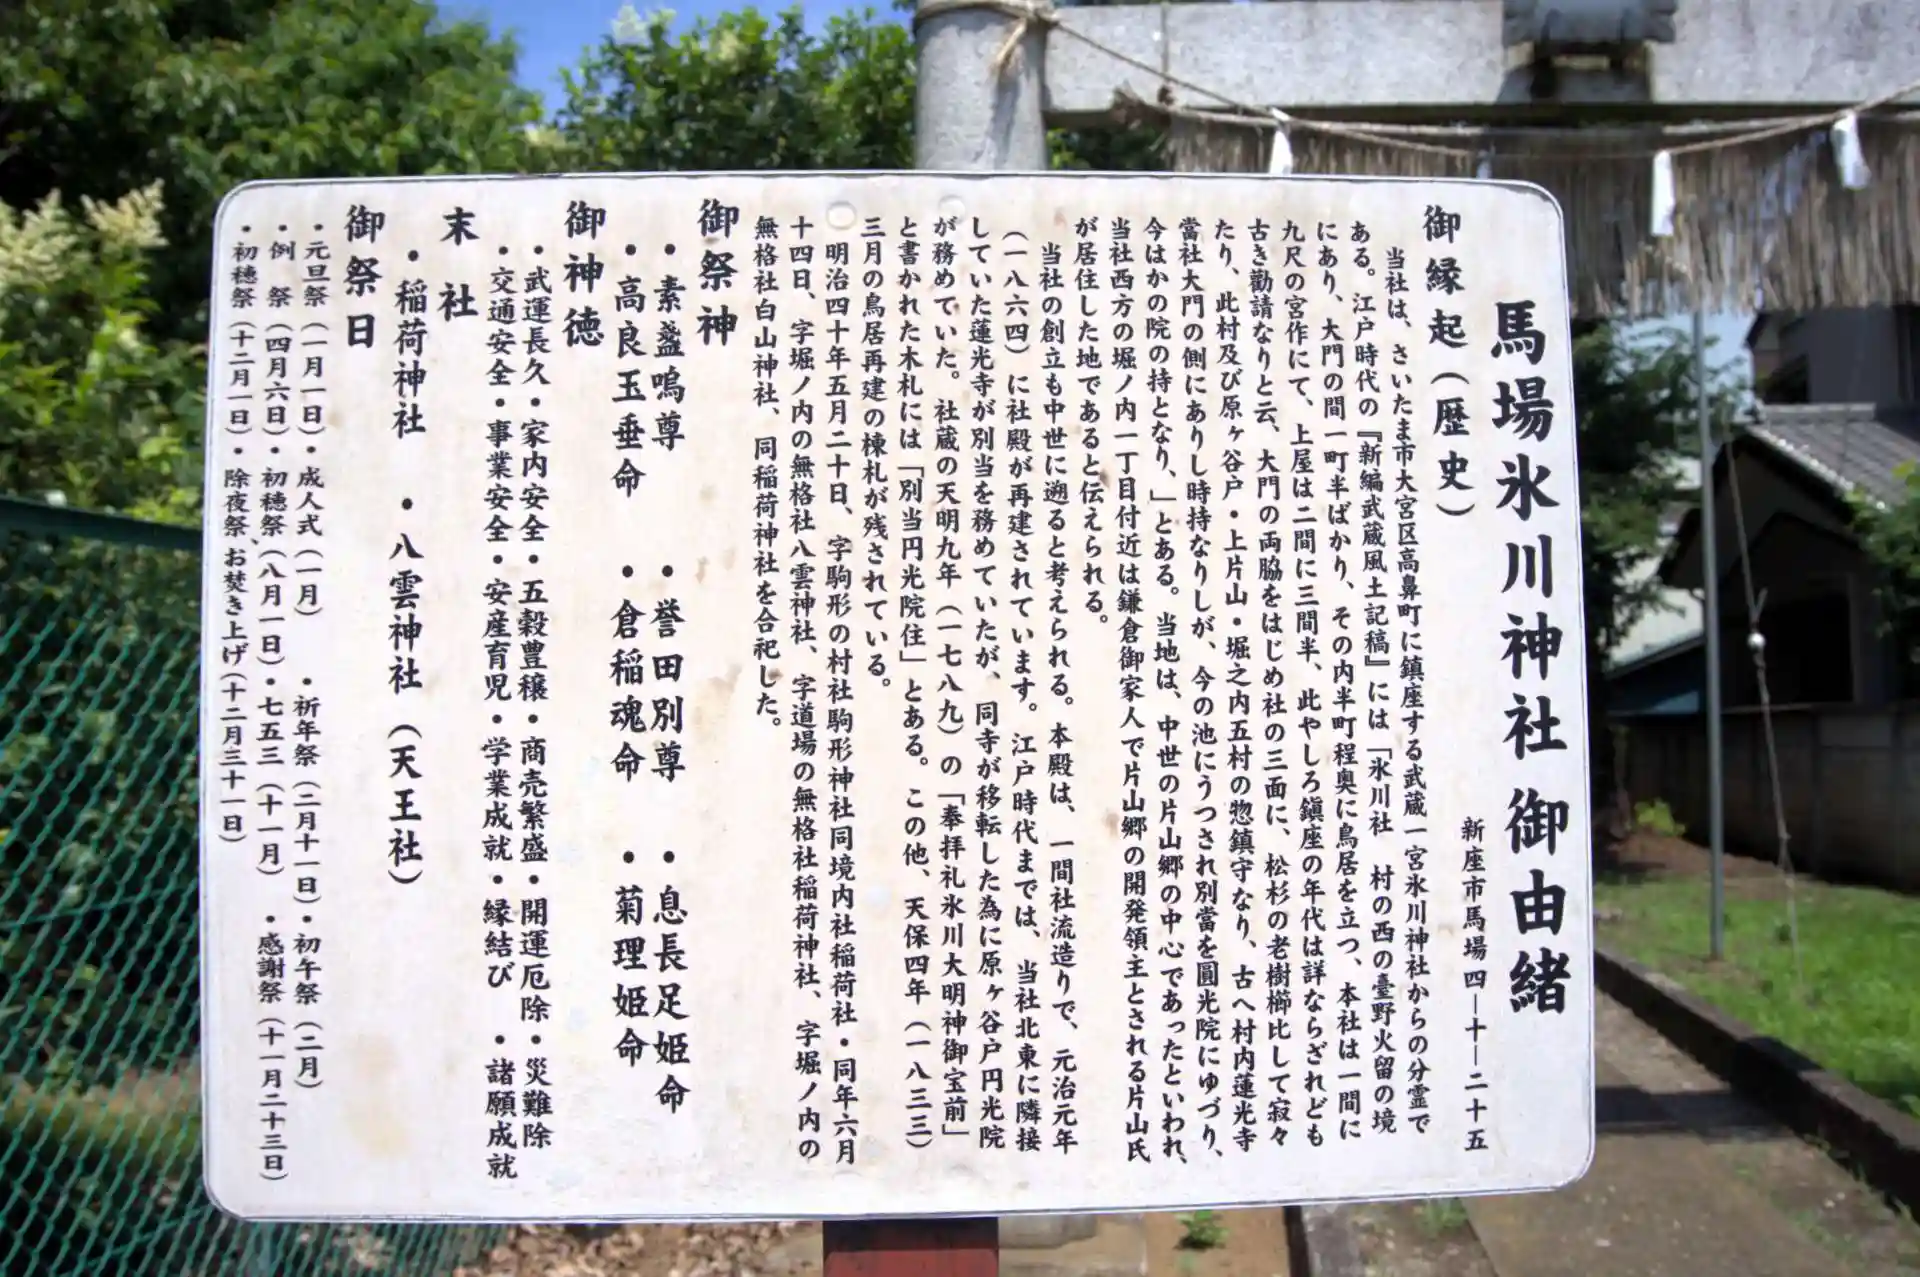 馬場氷川神社 御由緒
新座市馬場四―十―二十五
御縁起(歴史)
当社は、さいたま市大宮区高鼻町に鎮座する武蔵一宮氷川神社からの分霊で
ある。江戸時代の『新編武蔵風土記稿』には「氷川社 村の西の臺野火留の境
にあり、大門の間一町半ばかり、その内半町程奥に鳥居を立つ、本社は一間に
九尺の宮作にて、上屋は二間に三間半、此やしろ鎭座の年代は詳ならざれども
古き勸請なりと云、大門の両脇をはじめ社の三面に、松杉の老樹櫛比して寂々
たり、此村及び原ヶ谷戸・上片山・堀之内五村の惣鎮守なり、古へ村内蓮光寺
當社大門の側にありし時持なりしが、今の池にうつされ別當を圓光院にゆづり、
今はかの院の持となり、」とある。当地は、中世の片山郷の中心であったといわれ、
当社西方の堀ノ内一丁目付近は鎌倉御家人で片山郷の開発領主とされる片山氏
が居住した地であると伝えられる。
当社の創立も中世に遡ると考えられる。本殿は、一間社流造りで、元治元年
(一八六四)に社殿が再建されています。江戸時代までは、当社北東に隣接
していた蓮光寺が別当を務めていたが、同寺が移転した為に原ヶ谷戸円光院
が務めていた。社蔵の天明九年(一七八九)の「奉拝礼氷川大明神御宝前」
と書かれた木札には「別当円光院住」とある。この他、天保四年(一八三三)
三月の鳥居再建の棟札が残されている。
明治四十年五月二十日、字駒形の村社駒形神社同境内社稲荷社・同年六月
十四日、字堀ノ内の無格社八雲神社、字道場の無格社稲荷神社、字堀ノ内の
無格社白山神社、同稲荷神社を合祀した。
御祭神
・素盞嗚尊 ・誉田別尊 ・息長足姫命
・高良玉垂命 ・倉稲魂命 ・菊理姫命
御神徳
・武運長久・家内安全・五穀豊穣・商売繁盛・開運厄除・災難除
・交通安全・事業安全・安産育児・学業成就・縁結び ・諸願成就
末 社
・稲荷神社 ・八雲神社(天王社)
御祭日
・元旦祭(一月一日)・成人式(一月) ・祈年祭(二月十一日)・初午祭(二月)
・例 祭(四月六日)・初穂祭(八月一日)・七五三(十一月) ・感謝祭(十一月二十三日)
・初穂祭(十二月一日)・除夜祭、お焚き上げ(十二月三十一日)